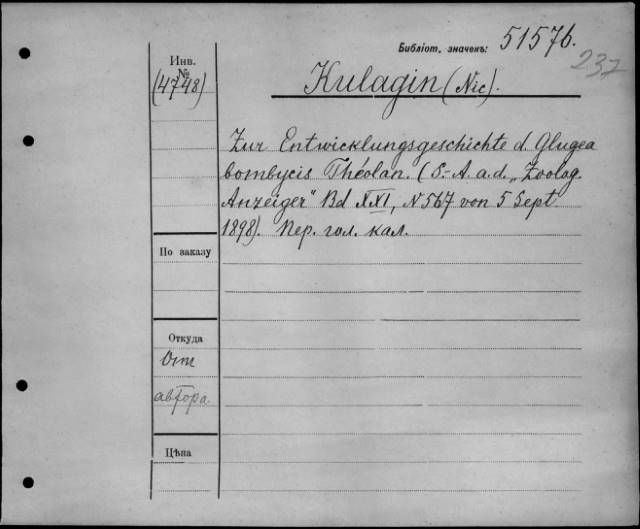 Библіот. значекъ: 51576.
237
Инв.
№
(4748)
Kulagin (Nic).
Zur Entwicklungsgeschichte d. Glugea
bombycis Théolan. (S.-A. a. d. „Zoolog.
Anzeiger" Bd XXI, N 567 von 5 Sept.
1898). Пер. гол. кал.
По заказу
Откуда
Отъ
автора.
Цѣна